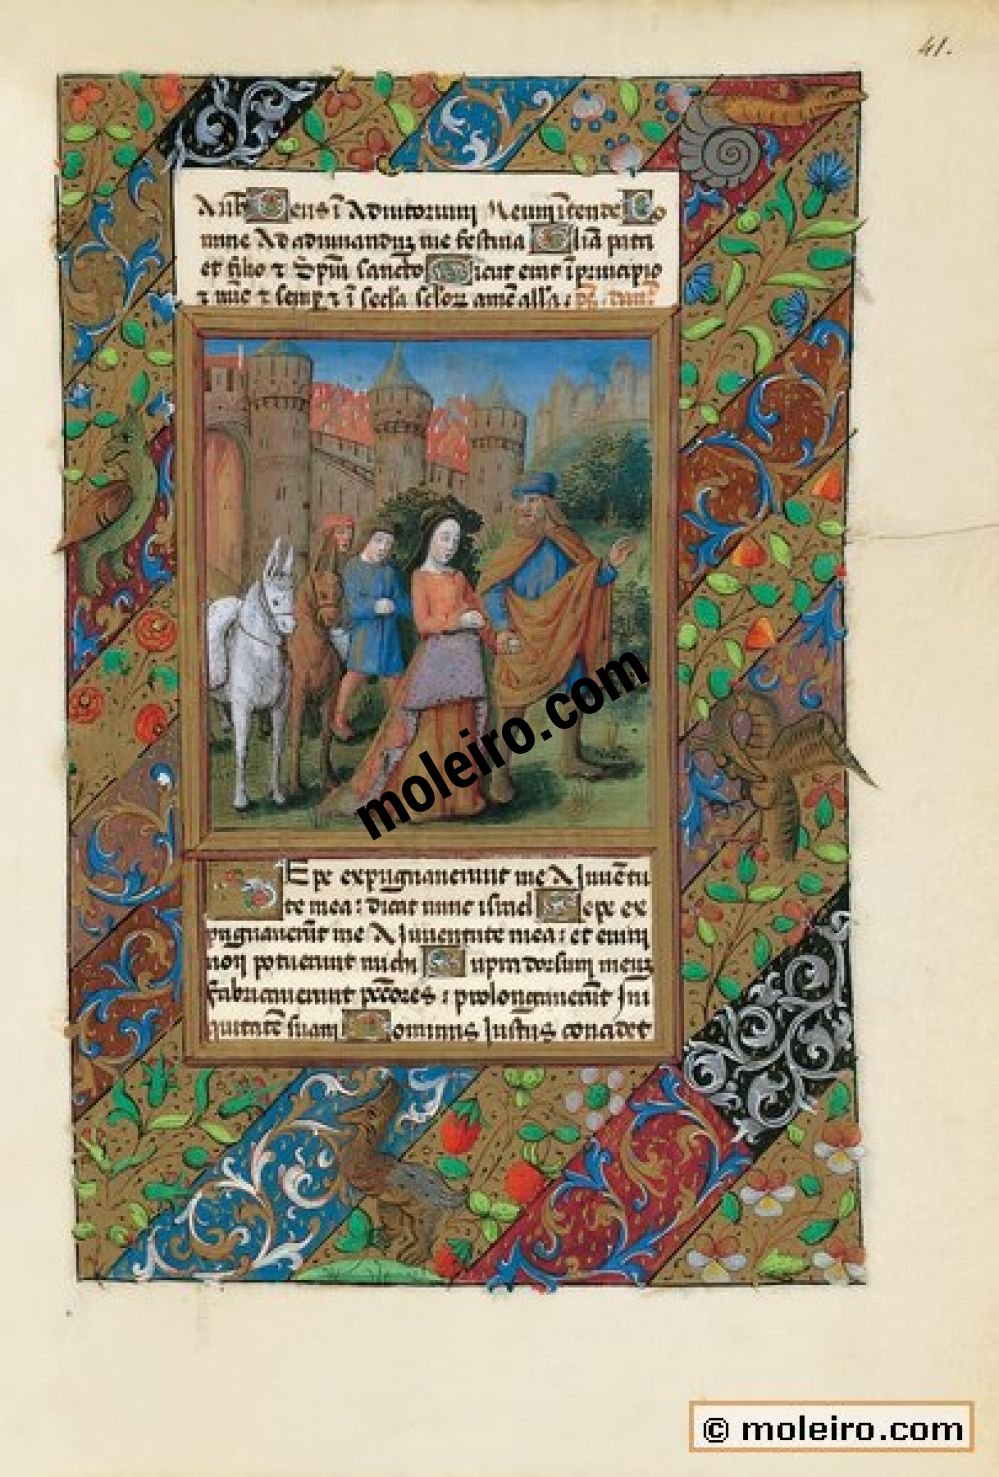 41.
Deus ī Adiutorium Meum ītende Do
mine Ad adiuuandum me festina Glia patri
et filio & Spūi sancto Sicut erat ī principio
& nūc & semp & ī secla amē alla
moleiro.com
SEpe expugnauerunt me A Iuuētu
te mea: dicat nunc isrl Sepe ex
pugnauerūt me A Iuuentute mea: et enim
non potuerunt michi Supra dorsum meum
fabricauerunt pctōres: prolongauerūt Ini
quitatē suam Dominus Iustus concidet
© moleiro.com